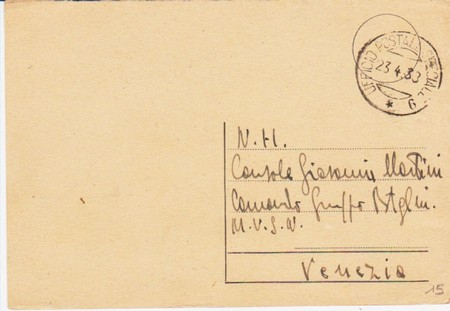 UFFICIO POSTALE SPECIALE
23.4.38
* 6
N.H.
Console Giovanni Martini
Comando Gruppo Btglni.
M.V.S.N.
Venezia
15